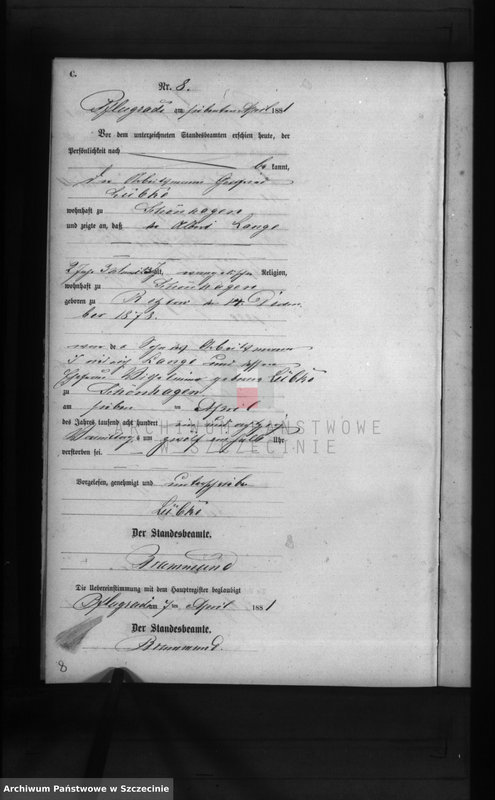 C.
Nr. 8.
Pflugrade am siebenten April 1881
Vor dem unterzeichneten Standesbeamten erschien heute, der
Persönlichkeit nach
be kannt,
der Arbeitsmann
Lübke
wohnhaft zu Schönhagen
und zeigte an, daß der Albert Lange
2 Jahr 3 alt, evangelischer Religion,
wohnhaft zu Schönhagen
geboren zu den 14. Dezem
ber 1878.
war des Sohn des Arbeitsmann
Lange und dessen
Ehefrau Wilhelmine geborene Lübke
zu Schönhagen
am sieben ten April
des Jahres tausend acht hundert und
Vormittags um zwölf ein halb Uhr
verstorben sei.
Vorgelesen, genehmigt und unterschrieben
Lübke
Der Standesbeamte.
Die Uebereinstimmung mit dem Hauptregister beglaubigt
Pflugrade am 7ten April 1881
Der Standesbeamte.
8
ARCHIWUM PAŃSTWOWE
W SZCZECINIE
Archiwum Państwowe w Szczecinie